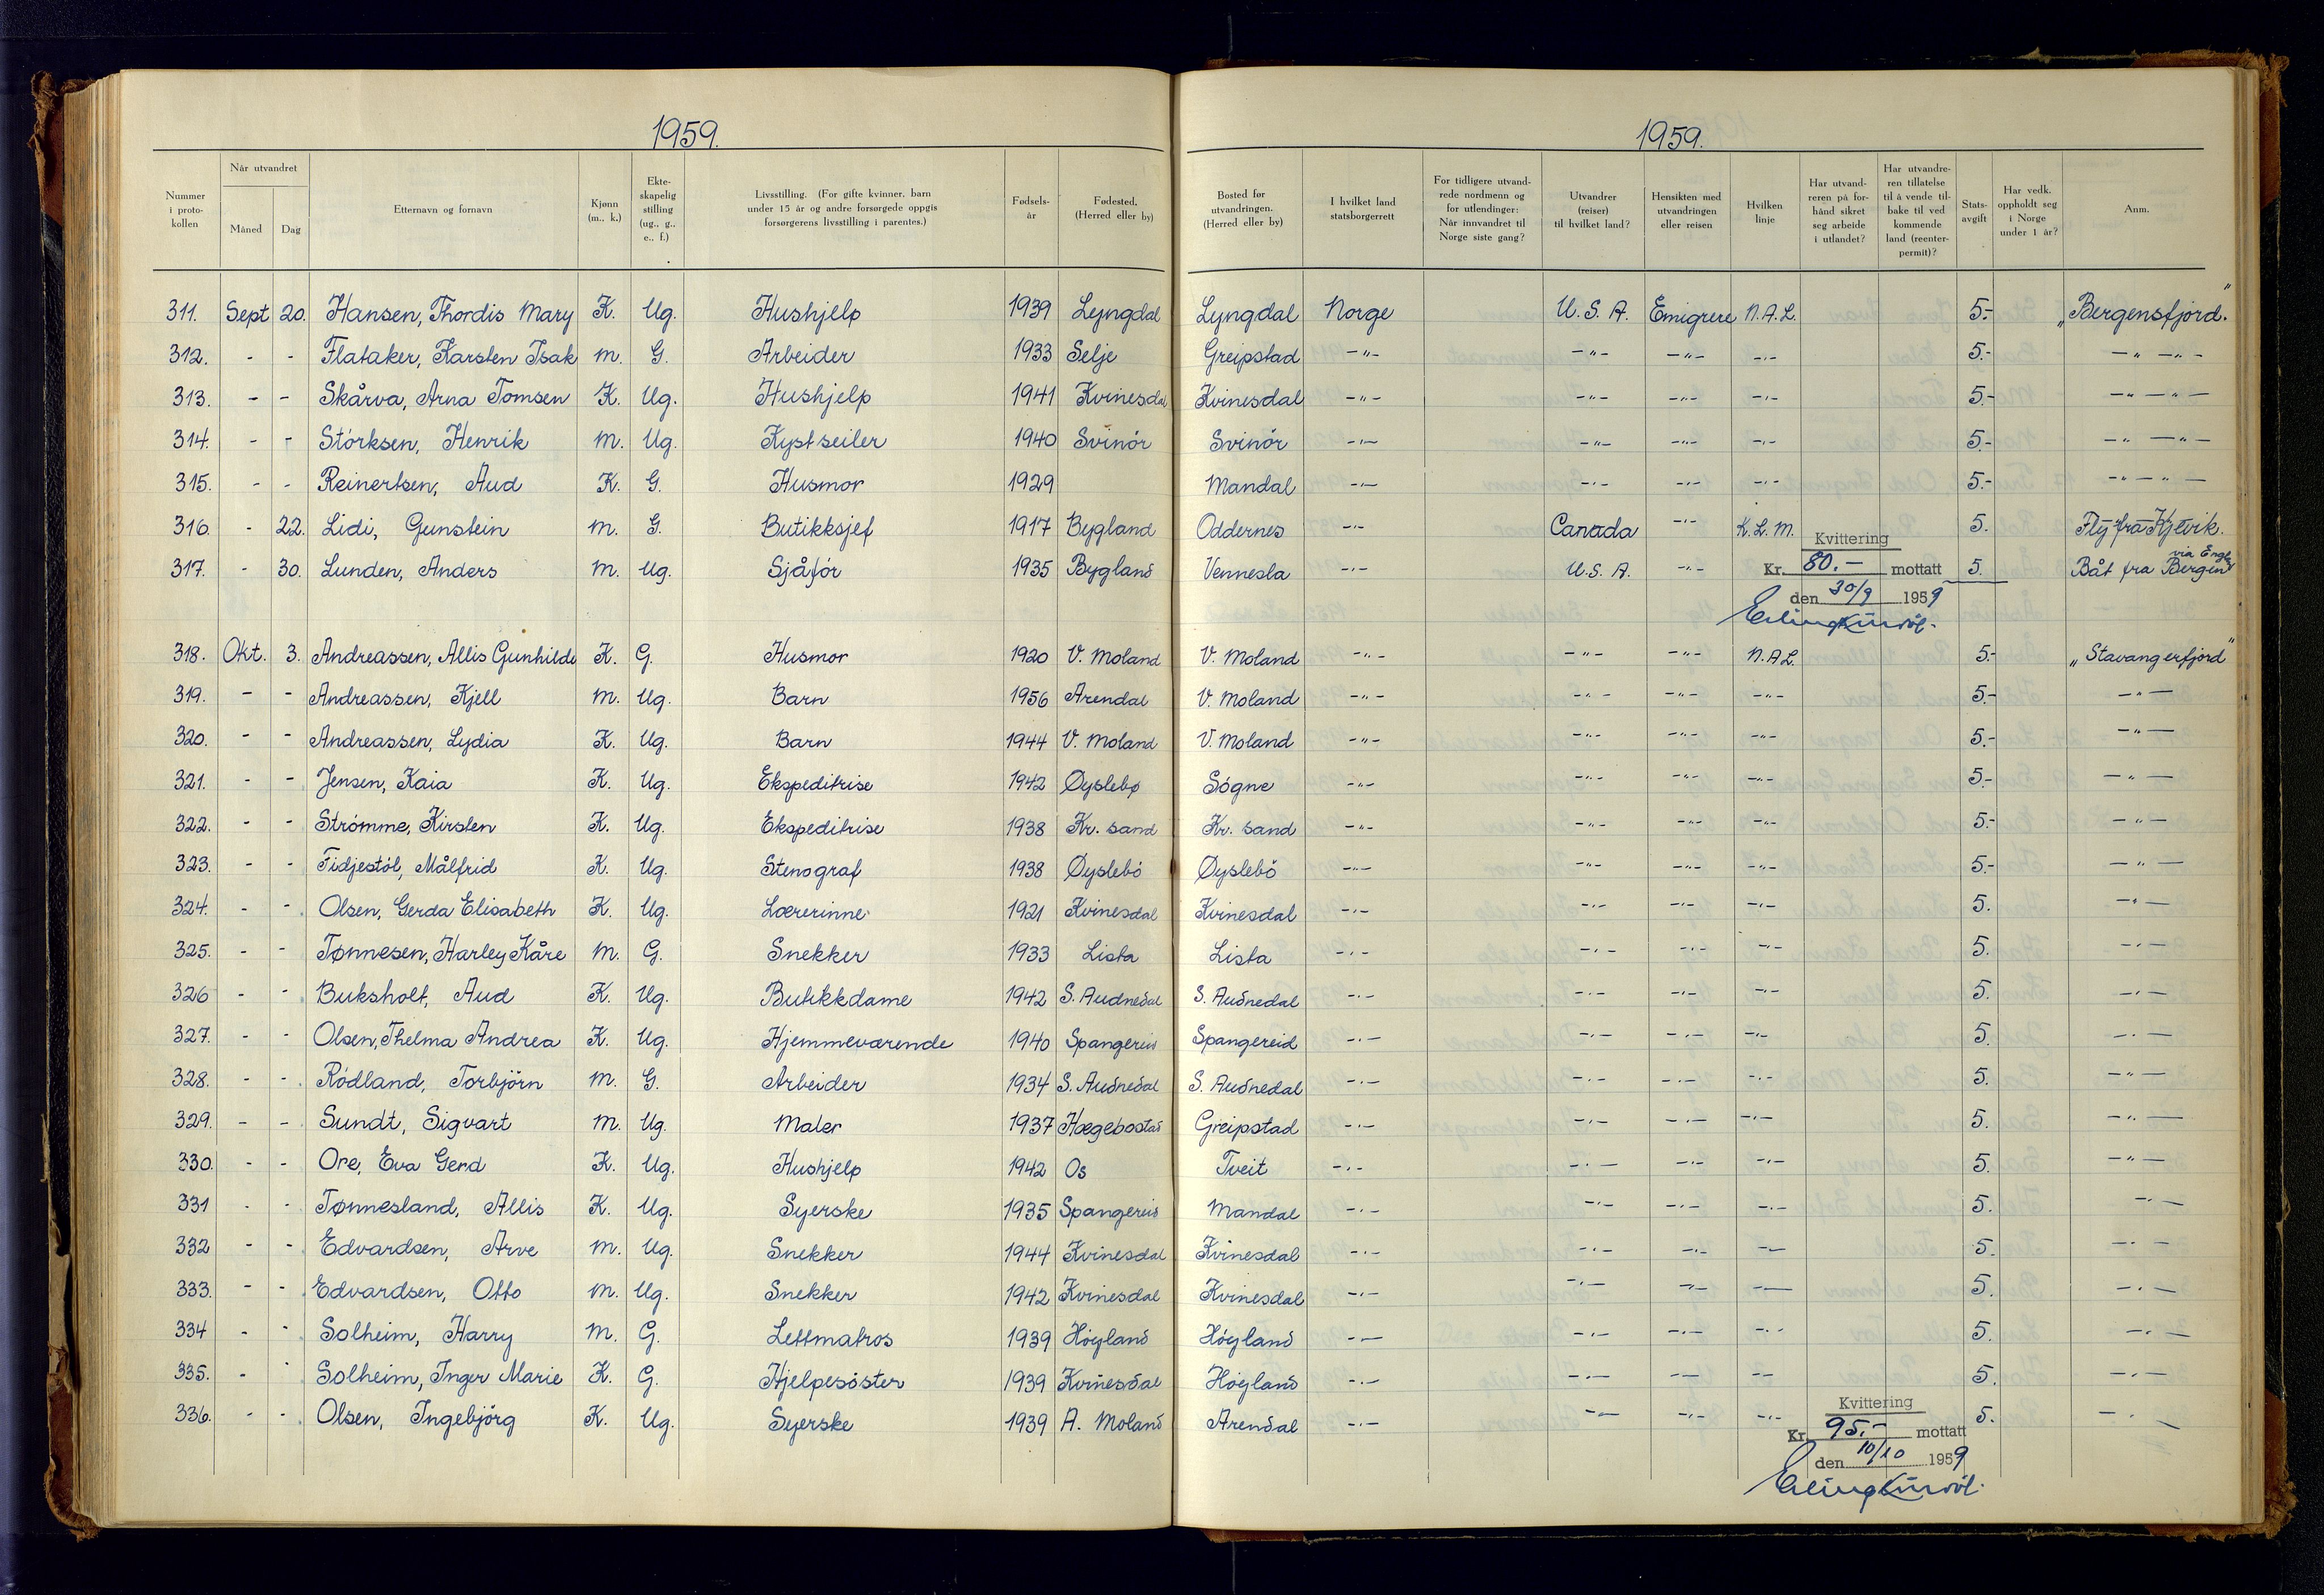 1959.
1959.
Nummer i proto-kollen | Når utvandret Måned | Dag | Etternavn og fornavn | Kjønn (m., k.) | Ekte-skapelig stilling (ug., g., e., f.) | Livsstilling. (For gifte kvinner, barn under 15 år og andre forsørgede oppgis forsørgerens livsstilling i parentes.) | Fødsels-år | Fødested. (Herred eller by) | Bosted før utvandringen. (Herred eller by) | I hvilket land statsborgerrett | For tidligere utvand-rede nordmenn og for utlendinger: Når innvandret til Norge siste gang? | Utvandrer (reiser) til hvilket land? | Hensikten med utvandringen eller reisen | Hvilken linje | Har utvand-reren på for-hånd sikret seg arbeide i utlandet? | Har utvandre-ren tillatelse til å vende til-bake til ved kommende land (reenter-permit)? | Stats-avgift | Har vedk. oppholdt seg i Norge under 1 år? | Anm.
311. Sept 20. Hansen, Thordis Mary K. Ug. Hushjelp 1939 Lyngdal Lyngdal Norge U.S.A. Emigrere N.A.L. 5.- „Bergensfjord."
312. - - Flataker, Karsten Isak m. G. Arbeider 1933 Selje Greipstad -"- -"- -"- -"- 5.- -"- -"-
313. - - Skårva, Arna Tomsen K. Ug. Hushjelp 1941 Kvinesdal Kvinesdal -"- -"- -"- -"- 5.- -"- -"-
314. - - Störksen, Henrik m. Ug. Kystseiler 1940 Svinör Svinör -"- -"- -"- -"- 5.- -"- -"-
315. - - Reinertsen, Aud K. G. Husmor 1929 Mandal -"- -"- -"- -"- 5.- -"- -"-
316. - 22. Lidi, Gunstein m. G. Butikksjef 1917 Bygland Oddernes -"- Canada -"- K.L.M. 5. Fly fra Kjevik.
317. - 30. Lunden, Anders m. Ug. Sjåför 1935 Bygland Vennesla -"- U.S.A. -"- 5. Båt fra Bergen via Engl.
Kvittering
Kr. 80.- mottatt
den 30/9 1959
318. Okt. 3. Andreassen, Allis Gunhilde K. G. Husmor 1920 V. Moland V. Moland -"- -"- -"- N.A.L. 5.- „Stavangerfjord"
319. - - Andreassen, Kjell m. Ug. Barn 1956 Arendal V. Moland -"- -"- -"- -"- 5.- -"-
320. - - Andreassen, Lydia K. Ug. Barn 1944 V. Moland V. Moland -"- -"- -"- -"- 5.- -"-
321. - - Jensen, Kaia K. Ug. Ekspeditrise 1942 Øyslebø Sögne -"- -"- -"- -"- 5.- -"-
322. - - Strömme, Kirsten K. Ug. Ekspeditrise 1938 Kr. sand Kr. sand -"- -"- -"- -"- 5.- -"-
323. - - Tidjestöl, Målfrid K. Ug. Stenograf 1938 Øyslebö Øyslebö -"- -"- -"- -"- 5.- -"-
324. - - Olsen, Gerda Elisabeth K. Ug. Lærerinne 1921 Kvinesdal Kvinesdal -"- -"- -"- -"- 5. -"-
325. - - Tønnesen, Harley Kåre m. G. Snekker 1933 Lista Lista -"- -"- -"- -"- 5. -"-
326 - - Buksholt, Aud K. Ug. Butikkdame 1942 S. Audnedal S. Audnedal -"- -"- -"- -"- 5. -"-
327. - - Olsen, Thelma Andrea K. Ug. Hjemmeværende 1940 Spangereid Spangereid -"- -"- -"- -"- 5. -"-
328. - - Rödland, Torbjörn m. G. Arbeider 1934 S. Audnedal S. Audnedal -"- -"- -"- -"- 5. -"-
329. - - Sundt, Sigvart m. Ug. Maler 1937 Hægebostad Greipstad -"- -"- -"- -"- 5. -"-
330. - - Ore, Eva Gerd K. Ug. Hushjelp 1942 Os Tveit -"- -"- -"- -"- 5. -"-
331 - - Tønnesland, Allis K. Ug. Syerske 1935 Spangereid Mandal -"- -"- -"- -"- 5. -"-
332 - - Edvardsen, Arve m. Ug. Snekker 1944 Kvinesdal Kvinesdal -"- -"- -"- -"- 5. -"-
333. - - Edvardsen, Otto m. Ug. Snekker 1942 Kvinesdal Kvinesdal -"- -"- -"- -"- 5. -"-
334 - - Solheim, Harry m. G. Lettmatros 1939 Höyland Höyland -"- -"- -"- -"- 5. -"-
335. - - Solheim, Inger Marie K. G. Hjelpesöster 1939 Kvinesdal Höyland -"- -"- -"- -"- 5. -"-
336. - - Olsen, Ingebjörg K. Ug. Syerske 1939 A. Moland Arendal -"- -"- -"- -"- 5. -"-
Kvittering
Kr. 95.- mottatt
den 10/10 1959